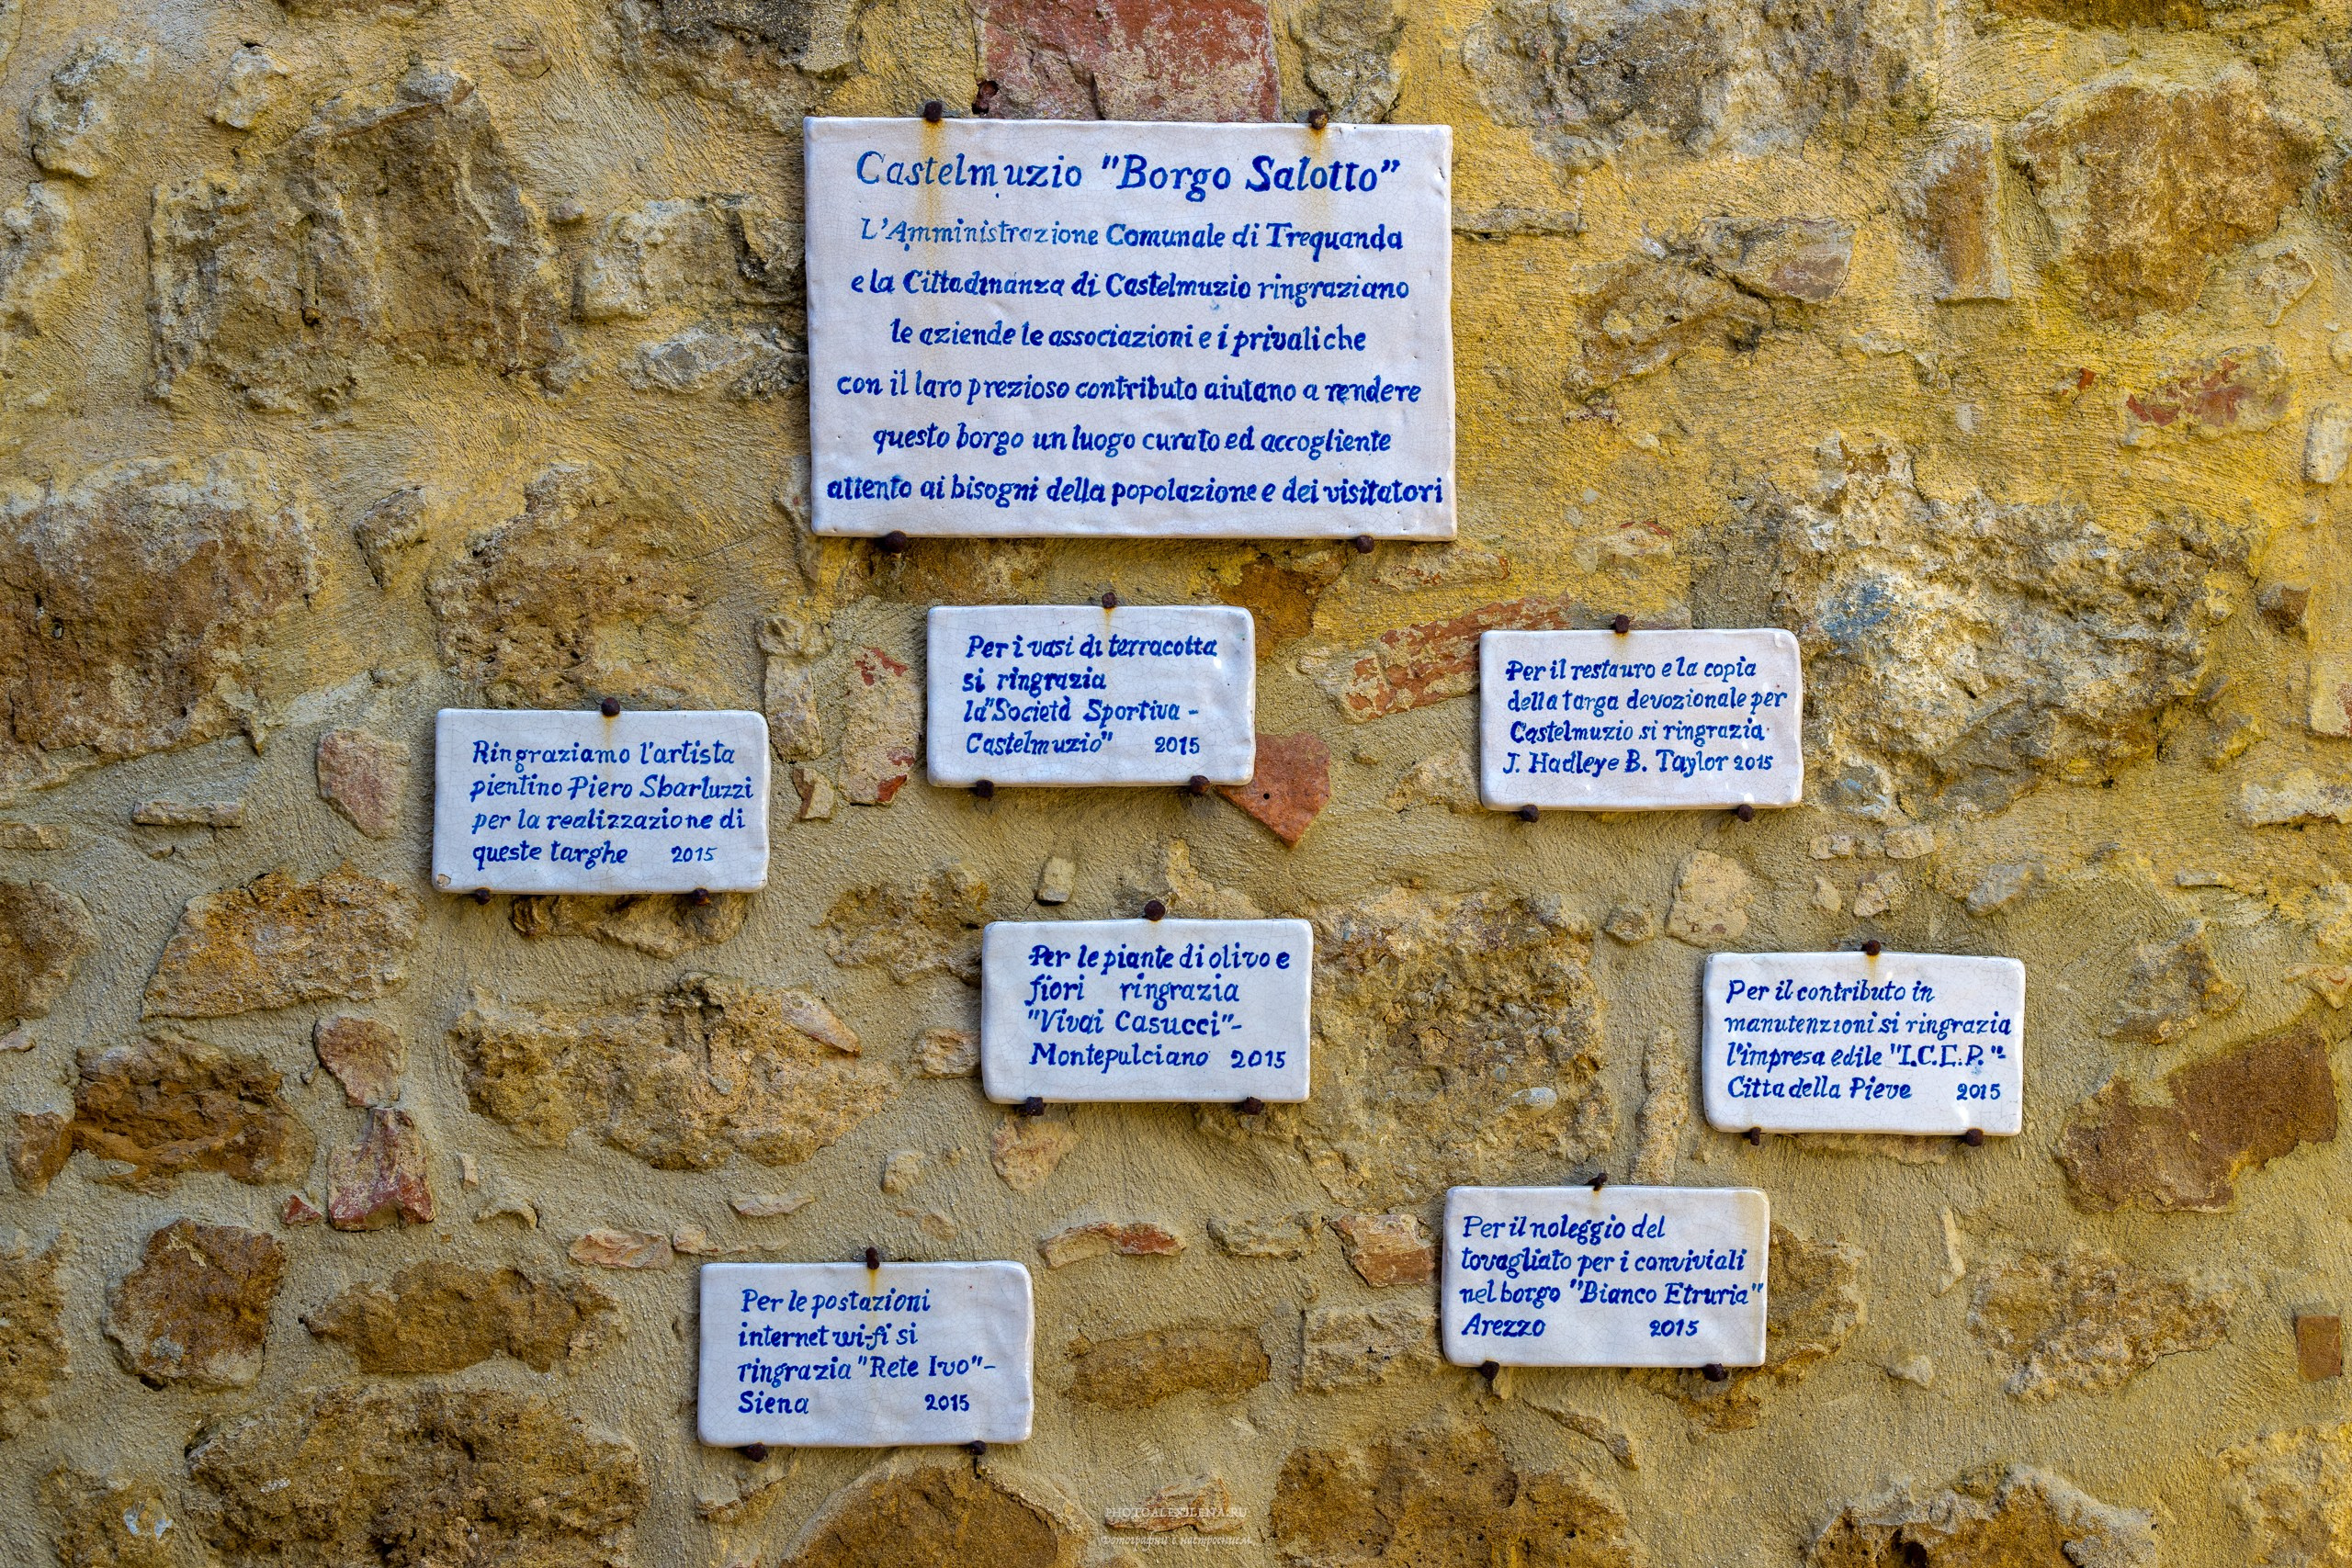 Castelmuzio "Borgo Salotto"
L'Amministrazione Comunale di Trequanda
e la Cittadinanza di Castelmuzio ringraziano
le aziende le associazioni e i privati che
con il loro prezioso contributo aiutano a rendere
questo borgo un luogo curato ed accogliente
attento ai bisogni della popolazione e dei visitatori
Per i vasi di terracotta
si ringrazia
la "Società Sportiva -
Castelmuzio" 2015
Per il restauro e la copia
della targa devozionale per
Castelmuzio si ringrazia
J. Hadley e B. Taylor 2015
Ringraziamo l'artista
pientino Piero Sbarluzzi
per la realizzazione di
queste targhe 2015
Per le piante di olivo e
fiori ringrazia
"Vivai Casucci"-
Montepulciano 2015
Per il contributo in
manutenzioni si ringrazia
l'impresa edile "I.C.E.P."-
Citta della Pieve 2015
Per il noleggio del
tovagliato per i conviviali
nel borgo "Bianco Etruria"
Arezzo 2015
Per le postazioni
internet wi-fi si
ringrazia "Rete Ivo"-
Siena 2015
PHOTOALEXILENA.RU
Фотографии с настроением